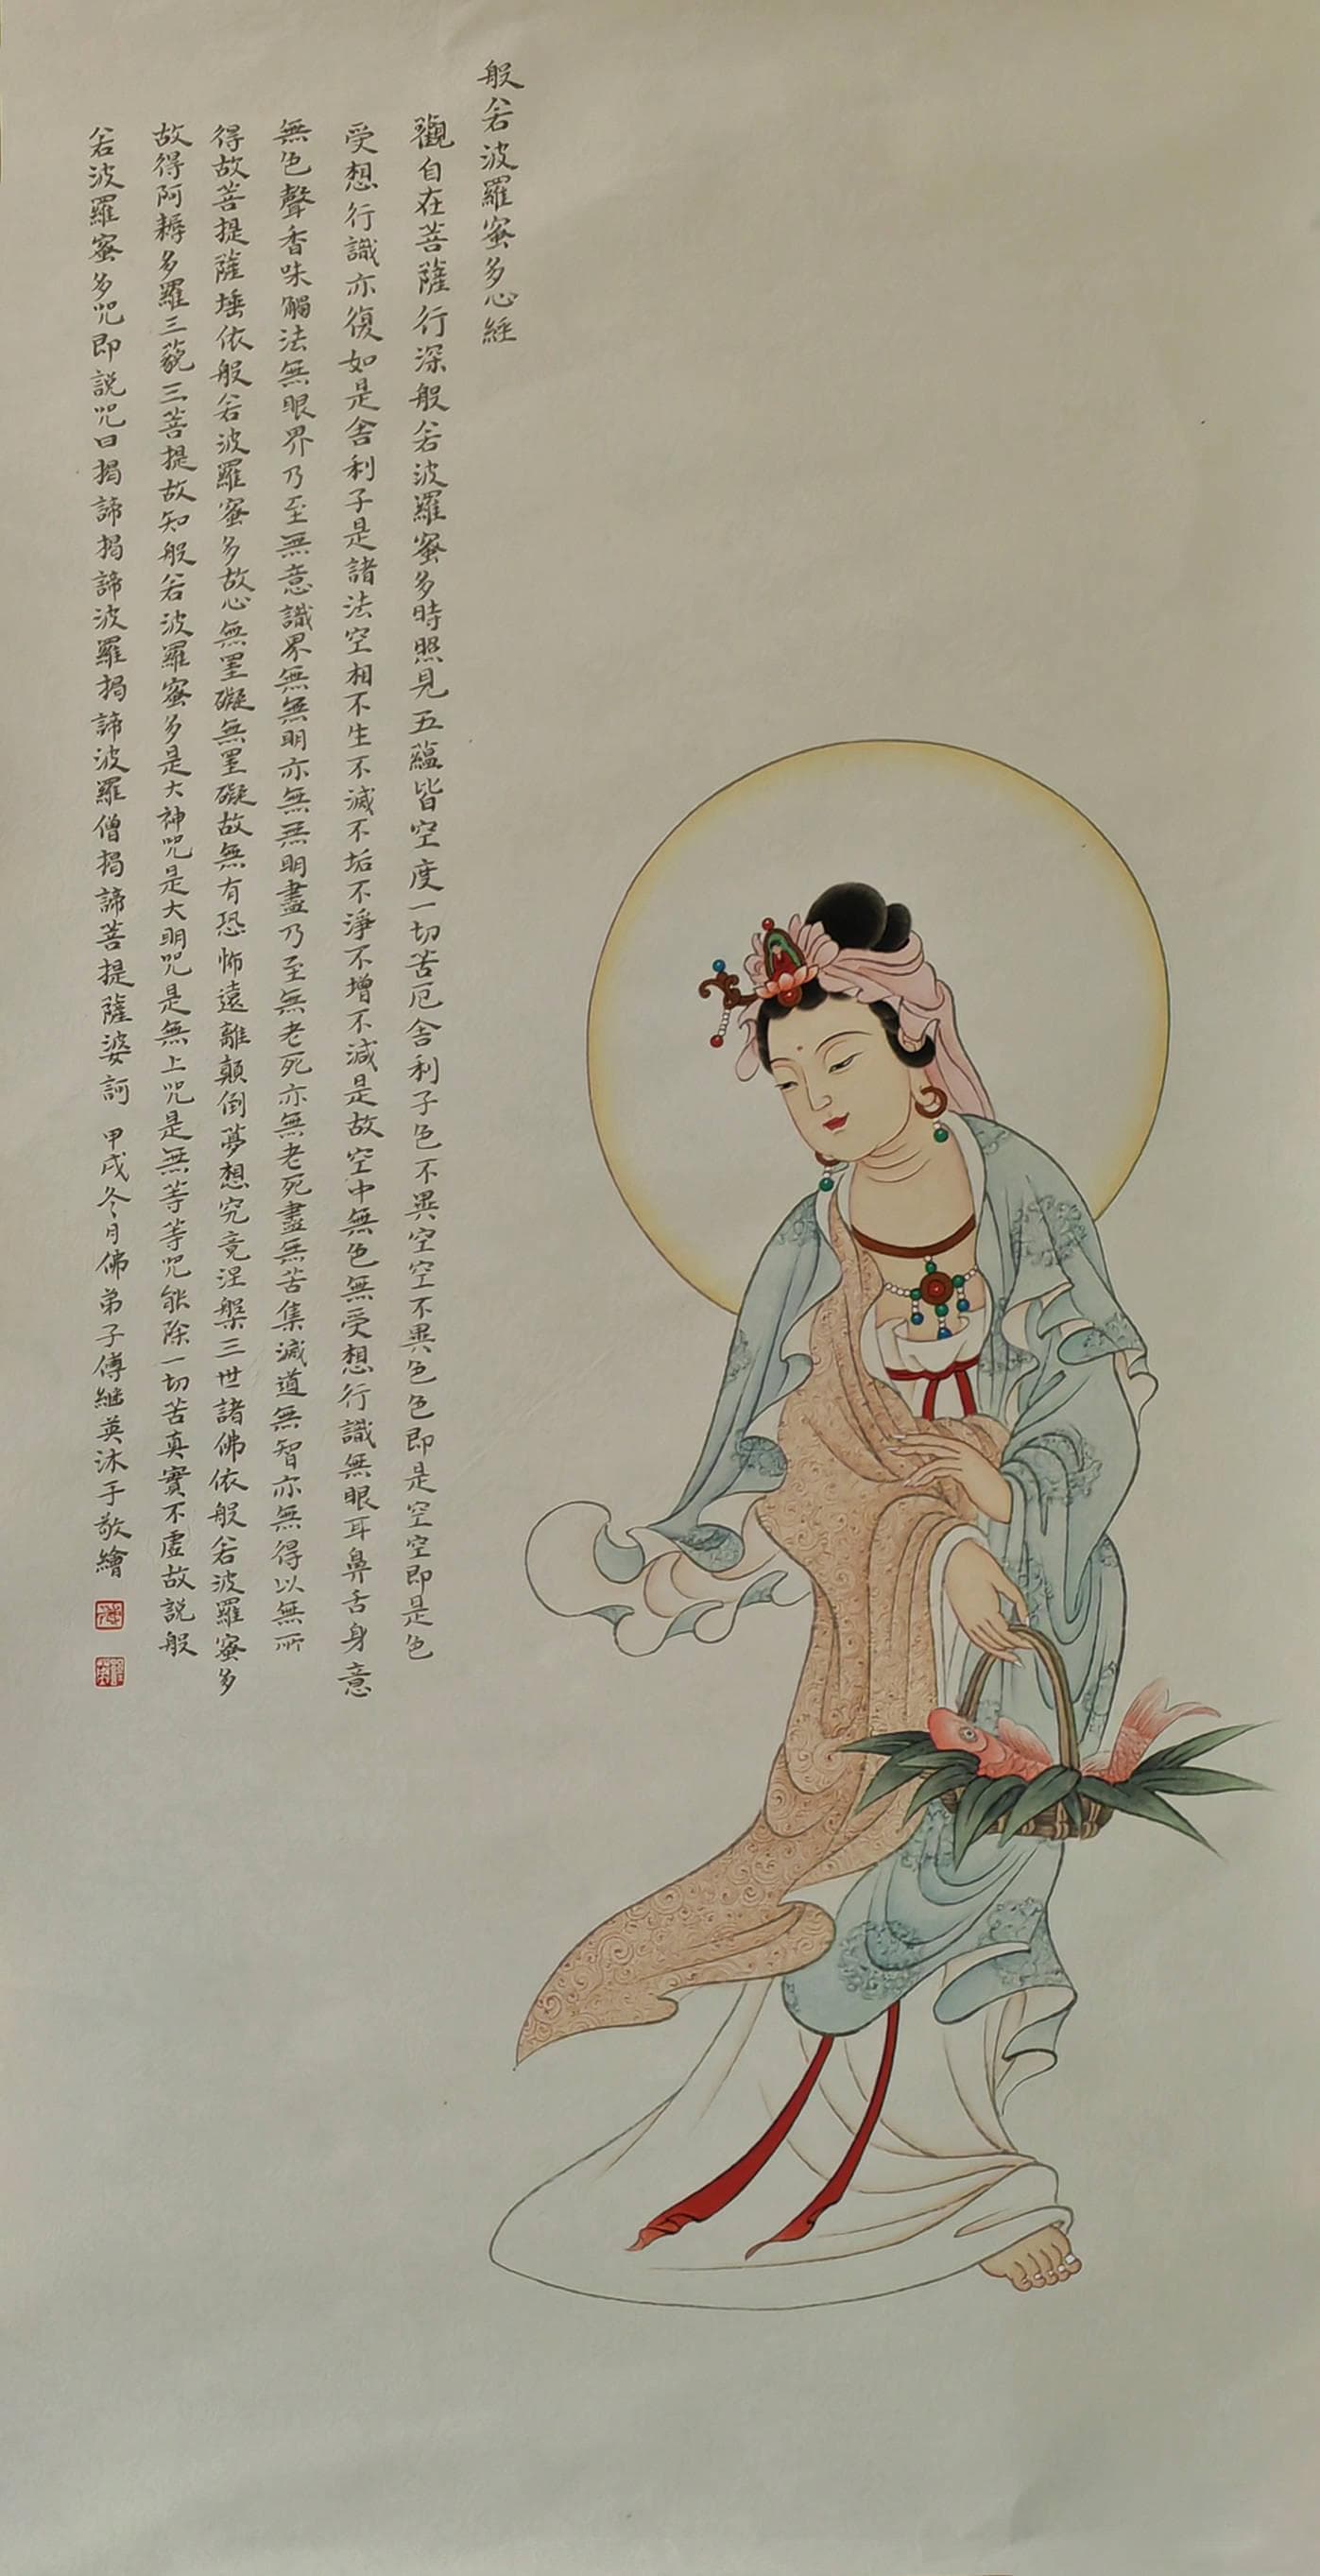 般若波羅蜜多心經
觀自在菩薩行深般若波羅蜜多時照見五蘊皆空度一切苦厄舍利子色不異空空不異色色即是空空即是色
受想行識亦復如是舍利子是諸法空相不生不滅不垢不淨不增不減是故空中無色無受想行識無眼耳鼻舌身意
無色聲香味觸法無眼界乃至無意識界無無明亦無無明盡乃至無老死亦無老死盡無苦集滅道無智亦無得以無所
得故菩提薩埵依般若波羅蜜多故心無罣礙無罣礙故無有恐怖遠離顛倒夢想究竟涅槃三世諸佛依般若波羅蜜多
故得阿耨多羅三藐三菩提故知般若波羅蜜多是大神咒是大明咒是無上咒是無等等咒能除一切苦真實不虛故說般
若波羅蜜多咒即說咒曰揭諦揭諦波羅揭諦波羅僧揭諦菩提薩婆訶 甲戌冬月佛弟子傅継英沐手敬繪